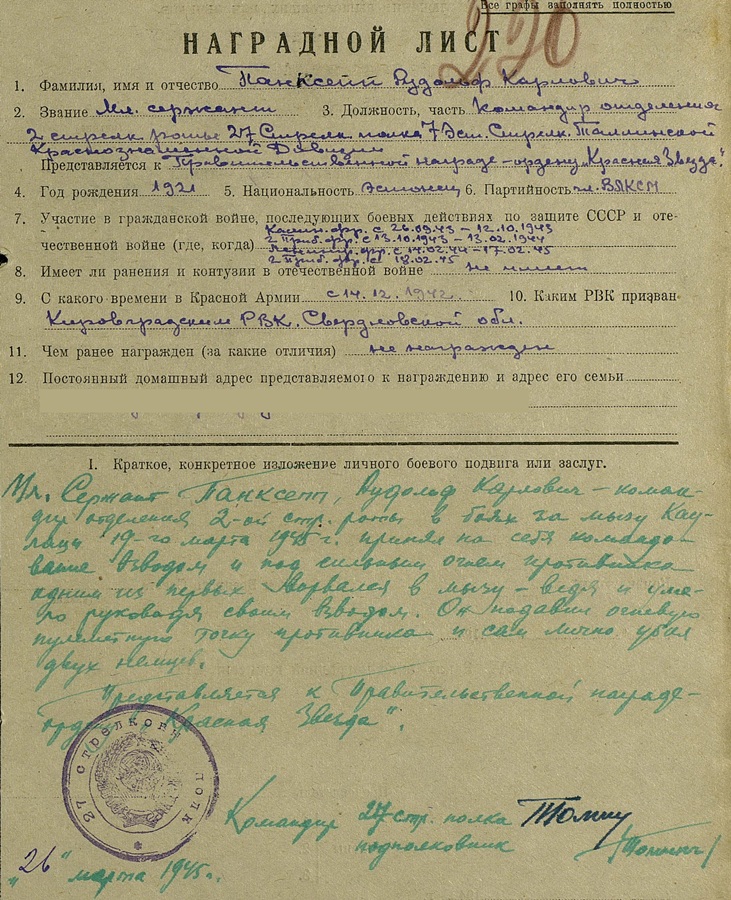 Все графы заполнять полностью
220
НАГРАДНОЙ ЛИСТ
1. Фамилия, имя и отчество Панксепп Рудольф Карлович
2. Звание Мл. сержант 3. Должность, часть Командир отделения
2 стрелк. роты 27 Стрелк. полка 7 Эст. Стрелк. Таллинской
Краснознаменной Дивизии
Представляется к Правительственной награде - ордену "Красная Звезда".
4. Год рождения 1921 5. Национальность Эстонец 6. Партийность чл. ВЛКСМ
7. Участие в гражданской войне, последующих боевых действиях по защите СССР и оте-
чественной войне (где, когда) Калин. фр. с 26.09.43 - 12.10.1943
2 Приб. фр. с 13.10.1943 - 13.02.1944
Ленингр. фр. с 14.02.44 - 17.02.45
2 Приб. фр. с 18.02.45
8. Имеет ли ранения и контузии в отечественной войне не имеет
9. С какого времени в Красной Армии с 14.12.1942 10. Каким РВК призван
Кировградским РВК. Свердловской обл.
11. Чем ранее награжден (за какие отличия) не награжден
12. Постоянный домашный адрес представляемого к награждению и адрес его семьи
I. Краткое, конкретное изложение личного боевого подвига или заслуг.
Мл. Сержант Панксепп, Рудольф Карлович - коман-
дир отделения 2-ой стр. роты в боях за мызу Кау-
лаци 19-го марта 1945 г. принял на себя командо-
вание взводом и под сильным огнем противника
одним из первых ворвался в мызу - ведя и уме-
ло руководя своим взводом. Он подавил огневую
пулеметную точку противника и сам лично убил
двух немцев.
Представляется к Правительственной награде-
ордену "Красная Звезда".
27 стрелковый полк
Командир 27 стр. полка
подполковник
"26" марта 1945 г.